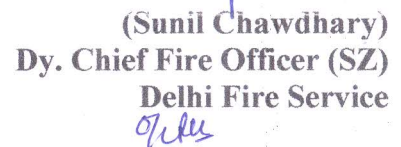 (Sunil Chawdhary)
Dy. Chief Fire Officer (SZ)
Delhi Fire Service